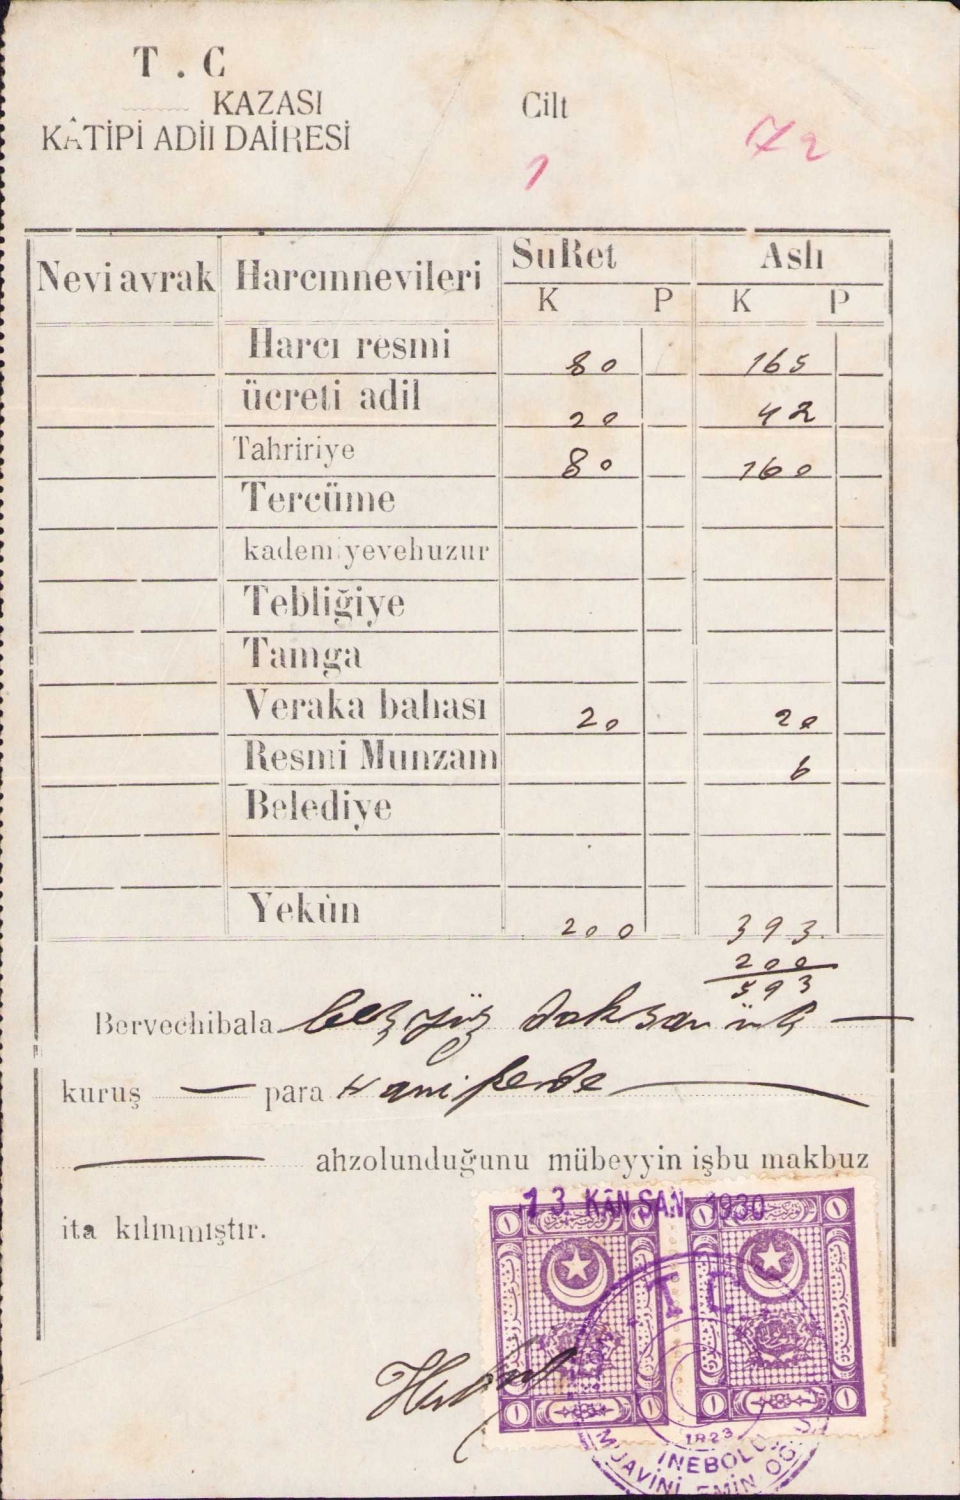 T . C
KAZASI
KÂTİPİ ADİl DAİRESİ
Cilt
1
72
Nevi avrak Harcınnevileri SuRet Aslı
K P K P
Harcı resmi 80 165
ücreti adil 20 42
Tahririye 80 160
Tercüme
kademiyevehuzur
Tebliğiye
Tamga
Veraka bahası 20 20
Resmi Munzam 6
Belediye
Yekûn 200 393
200
593
Bervechibala beş yüz doksan üç
kuruş para
ahzolunduğunu mübeyyin işbu makbuz
ita kılınmıştır.
13 KÂN SANİ 1930
T.C
1923
İNEBOLU
MUAVİNİ EMİN